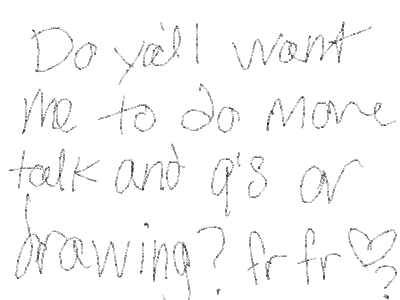 Do ya'll want
me to do more
talk and q's or
drawing? fr fr ♡?